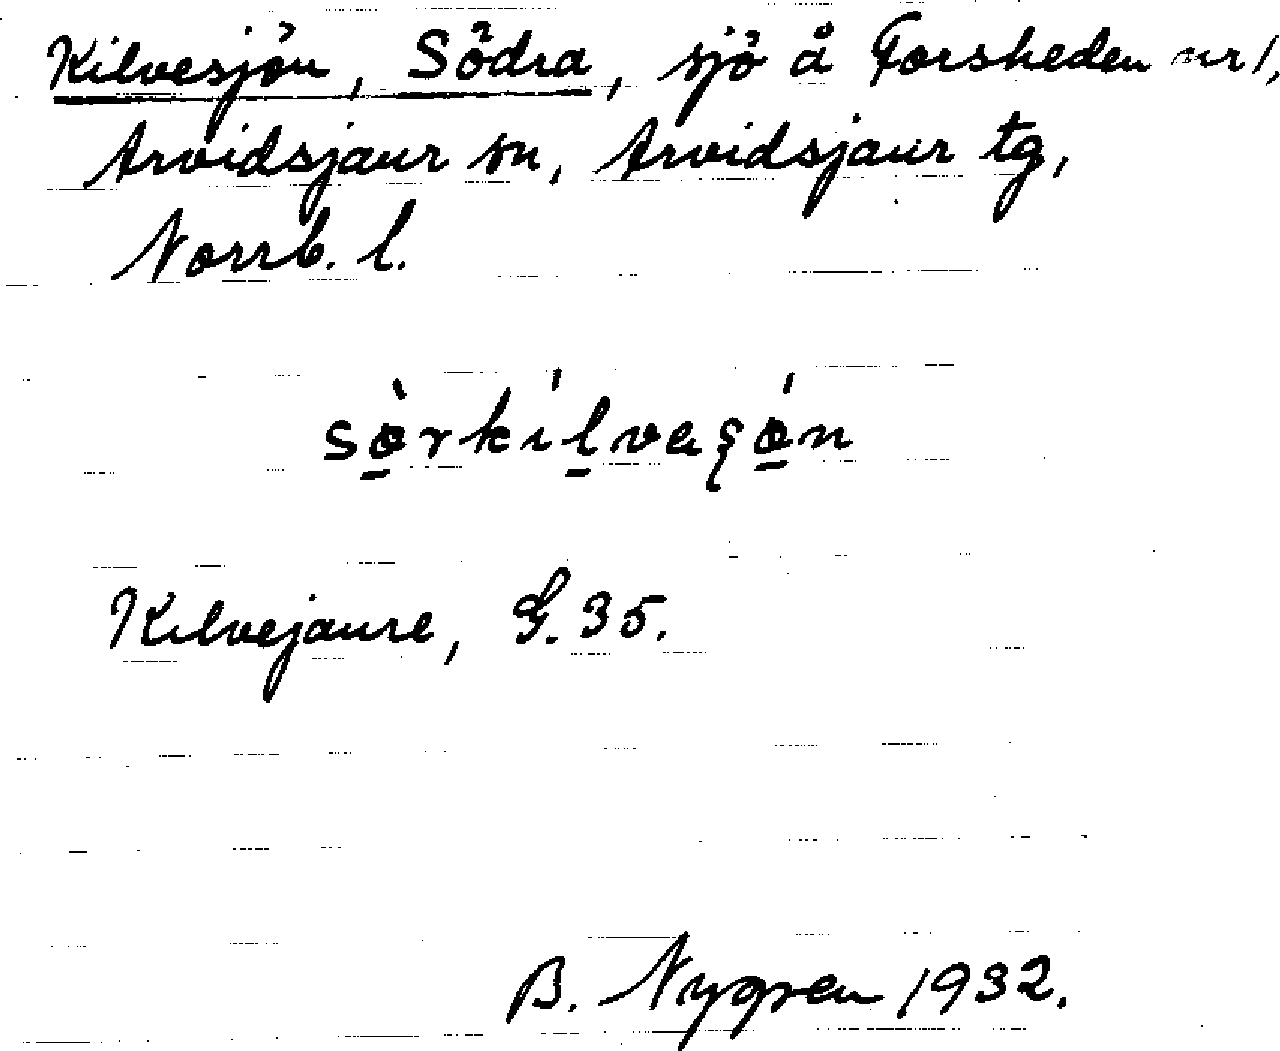 Kilvesjön, Södra, sjö å Forsheden nr 1,
Arvidsjaur sn, Arvidsjaur tg,
Norrb. l.
Kilvejaure, G. 35.
B. Nygren 1932.